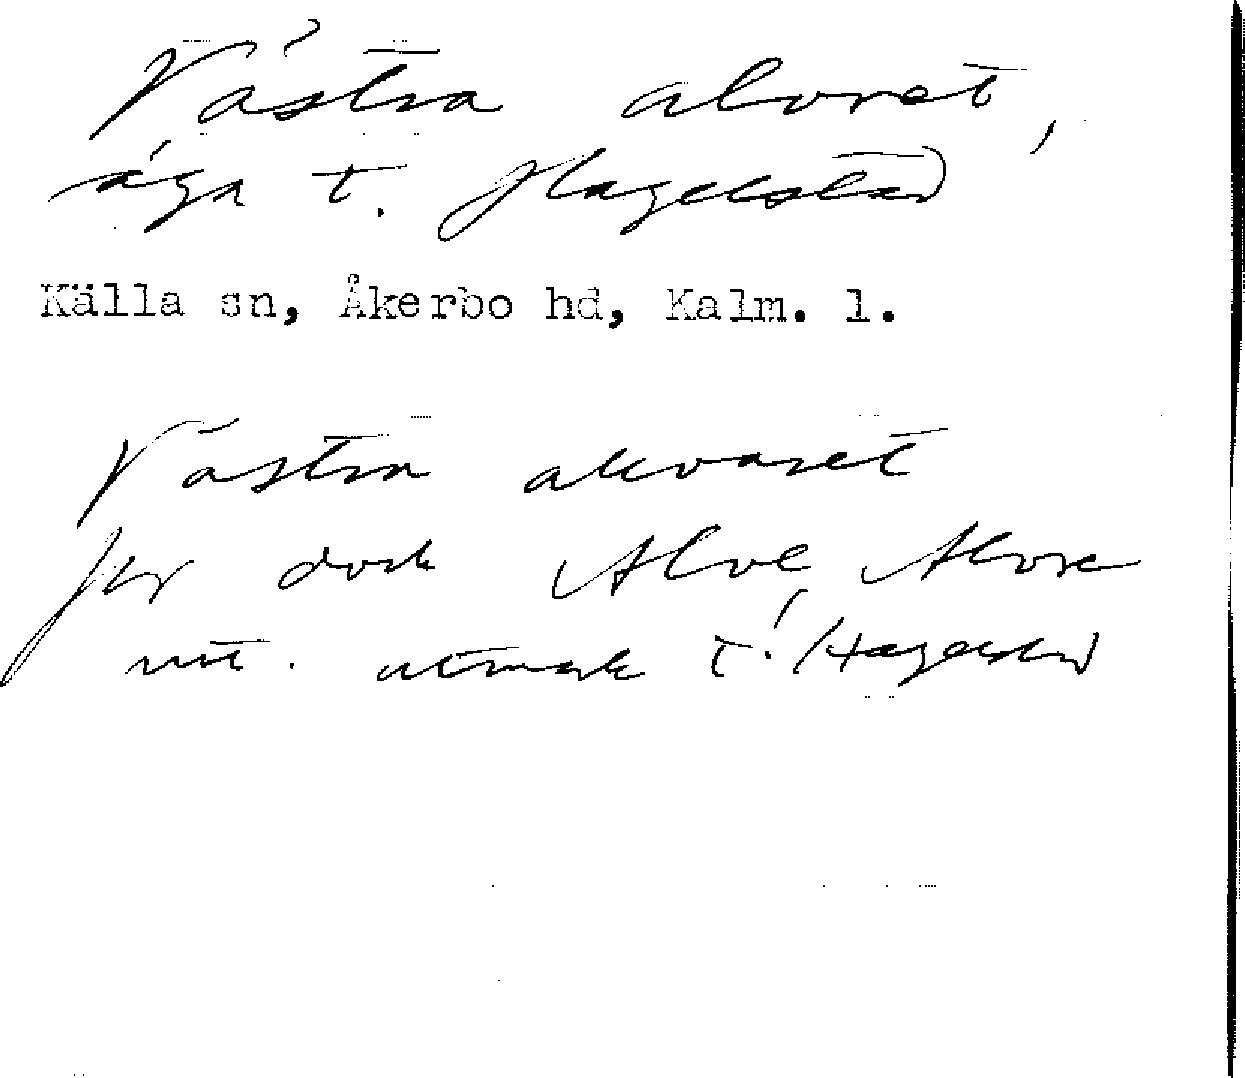 Västra alvret,
äga t. Hagelstad
Källa sn, Åkerbo hd, Kalm. l.
Västra alvaret
Jfr dock Alve, Alvre
utmark t. Hagelstad